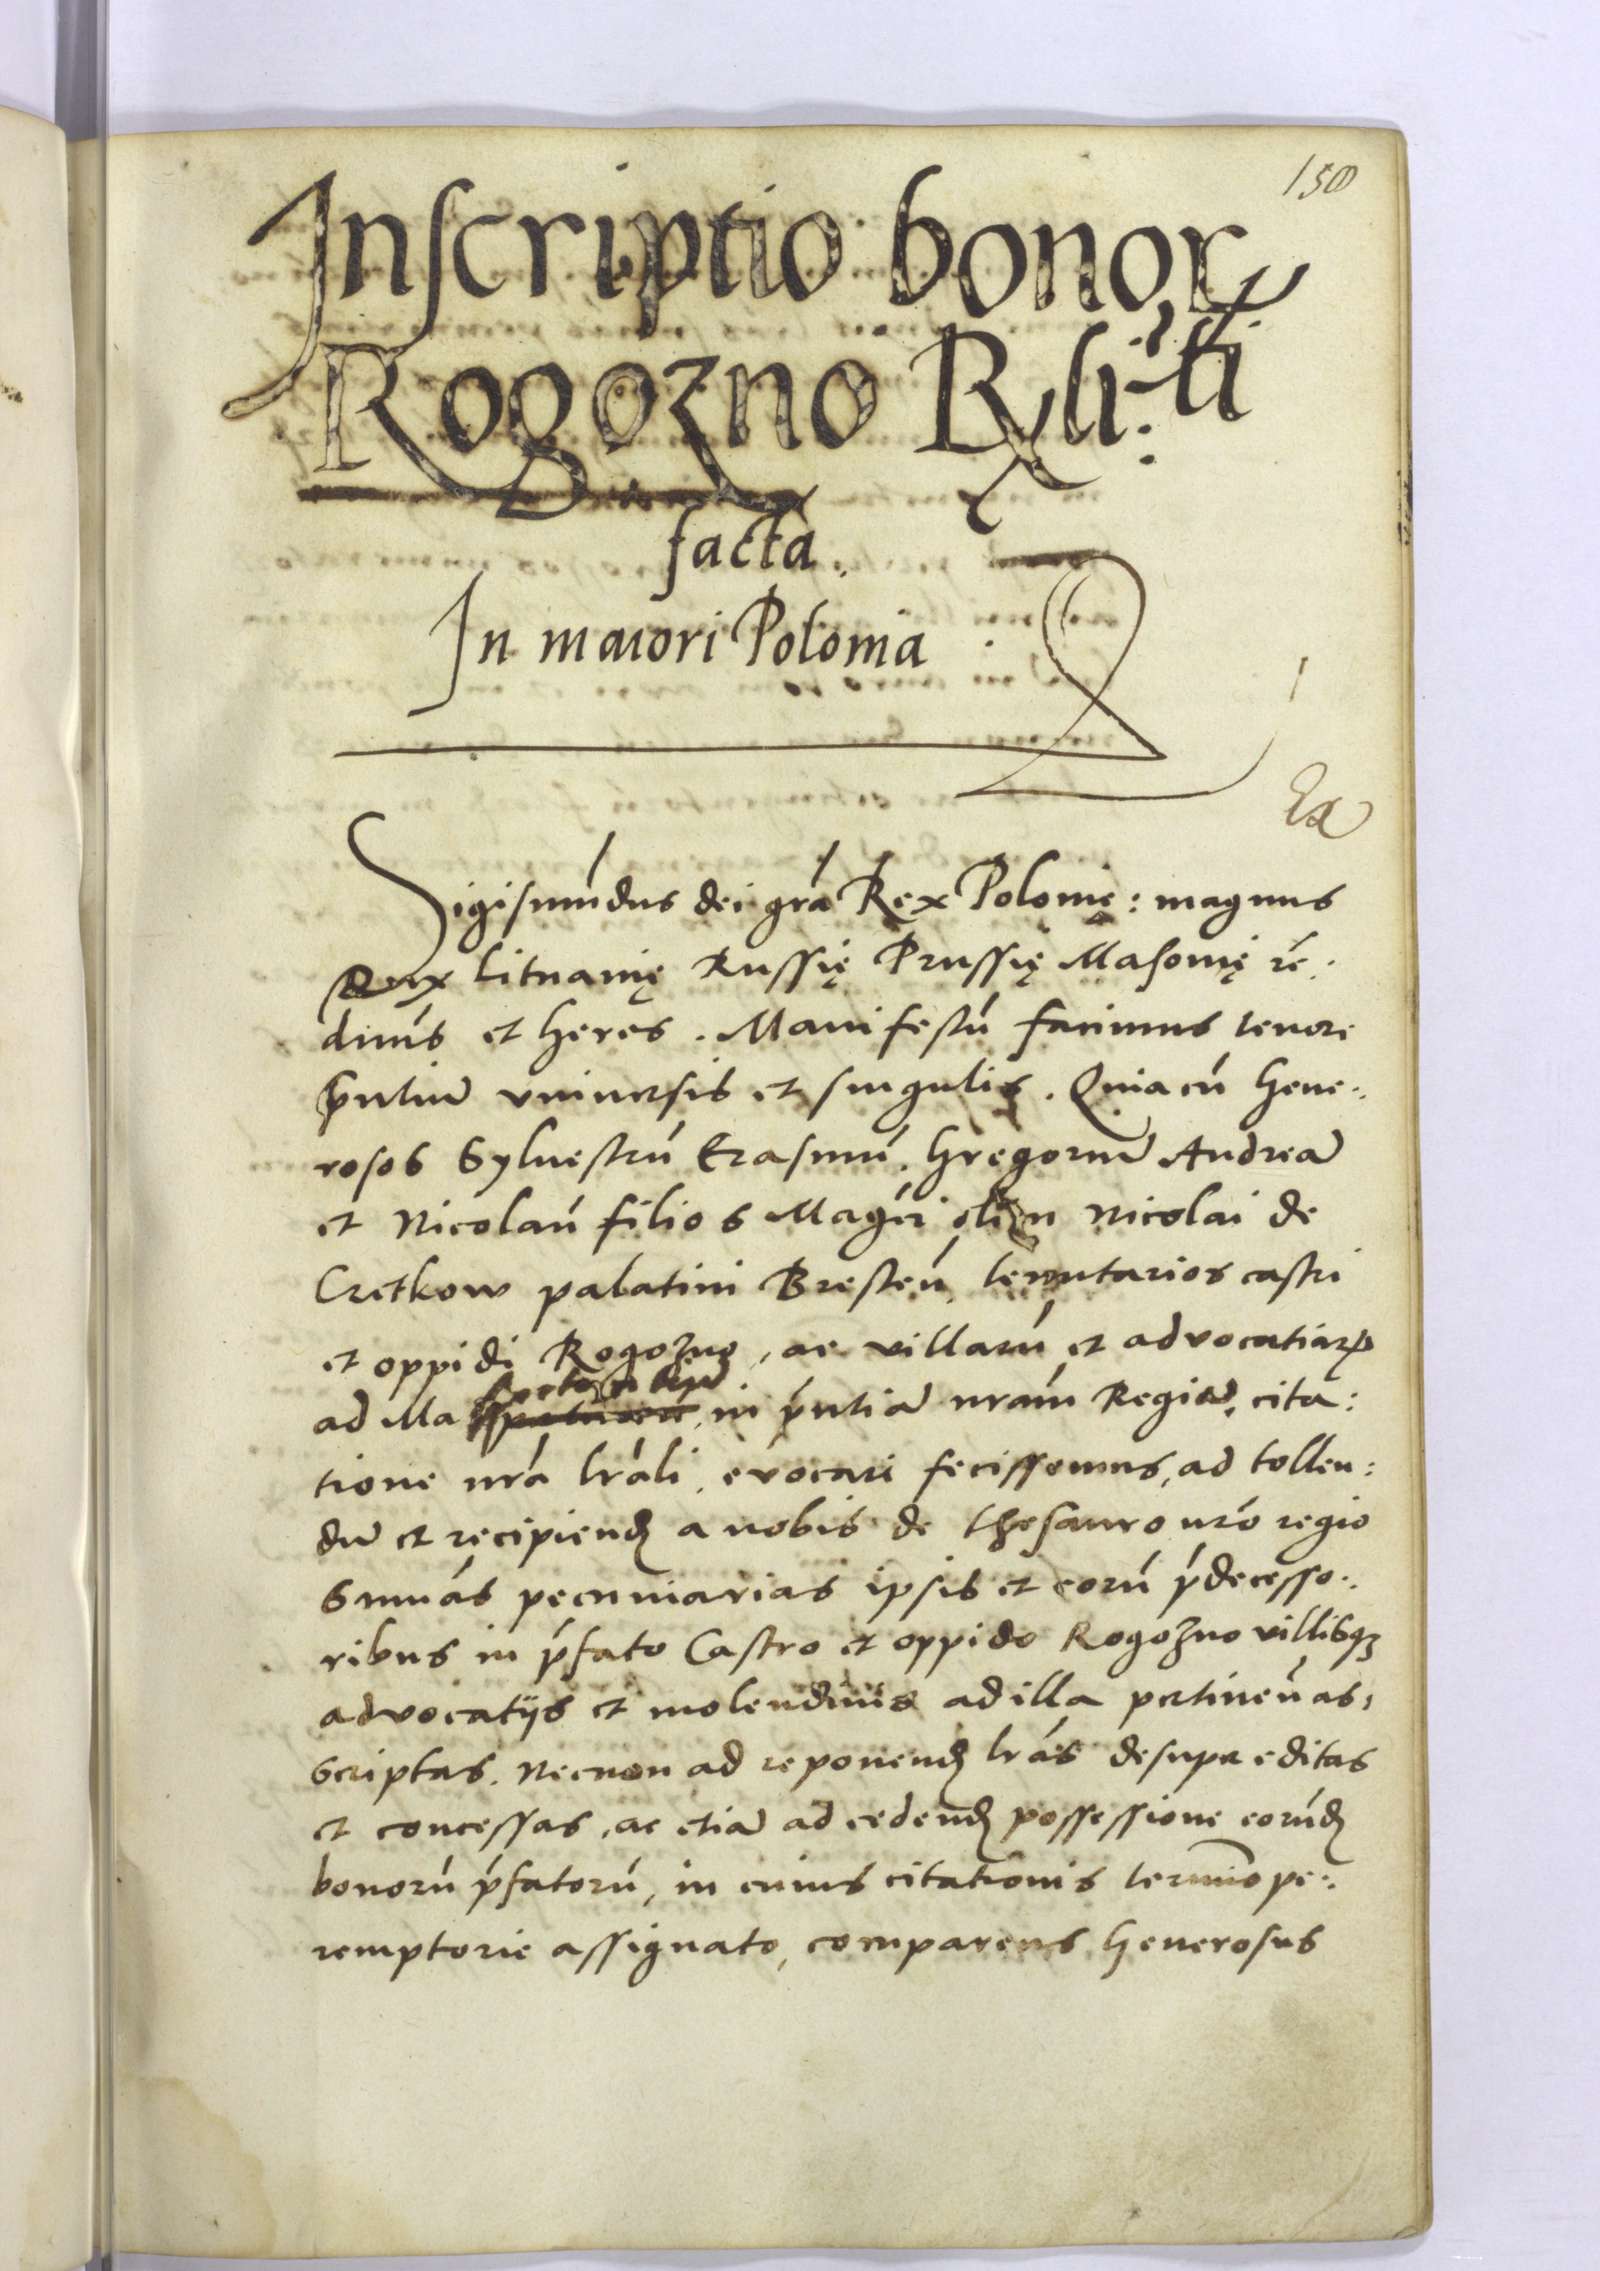 150
Inscriptio bonor
Rogozno Rgli: ti
facta.
In maiori Polonia
Sigismúndus dei grá Rex Polonię: magnus
Dux Lituanię Russię Prussię Masouię ré:
dnús et heres. Manifestú facimus tenore
pñtium vniuersis et singulis. Quia cú Gene:
rosos Syluestrú Erasmú. Gregorium Andream
et Nicolaú filios Magci olim Nicolai de
Cretkow palatini Bresteń. tenutarios castri
et oppidi Rogozno, ac villarú et advocatiarum
ad illa spectantium in pñtiam nram Regiam, cita:
tione nrá lráli, evocari fecissemus, ad tollen:
dum et recipiend a nobis de thesauro nró regio
summás pecuniarias ipsis et eorú pdecesso:
ribus in pfato Castro et oppido Rogozno villisq3
advocatijs et molendinis ad illa pertineń as,
scriptas. Necnon ad reponend lrás desuper editas
et concessas, ac etiam ad cedend possessione eorúd
bonorú pfatorú, in cuius citationis termino pe:
remptorie assignato, comparens Generosus